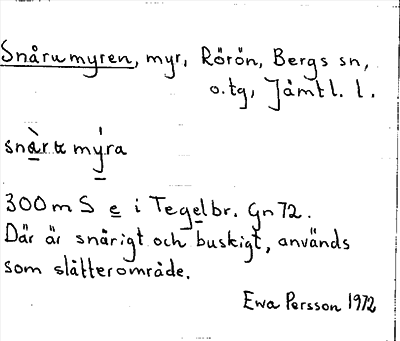 Snårumyren, myr, Rörön, Bergs sn,
o. tg, Jämtl. l.
snàru mýra
300 m S e i Tegelbr. Gn 72.
Där är snårigt och buskigt, används
som slåtterområde.
Ewa Persson 1972